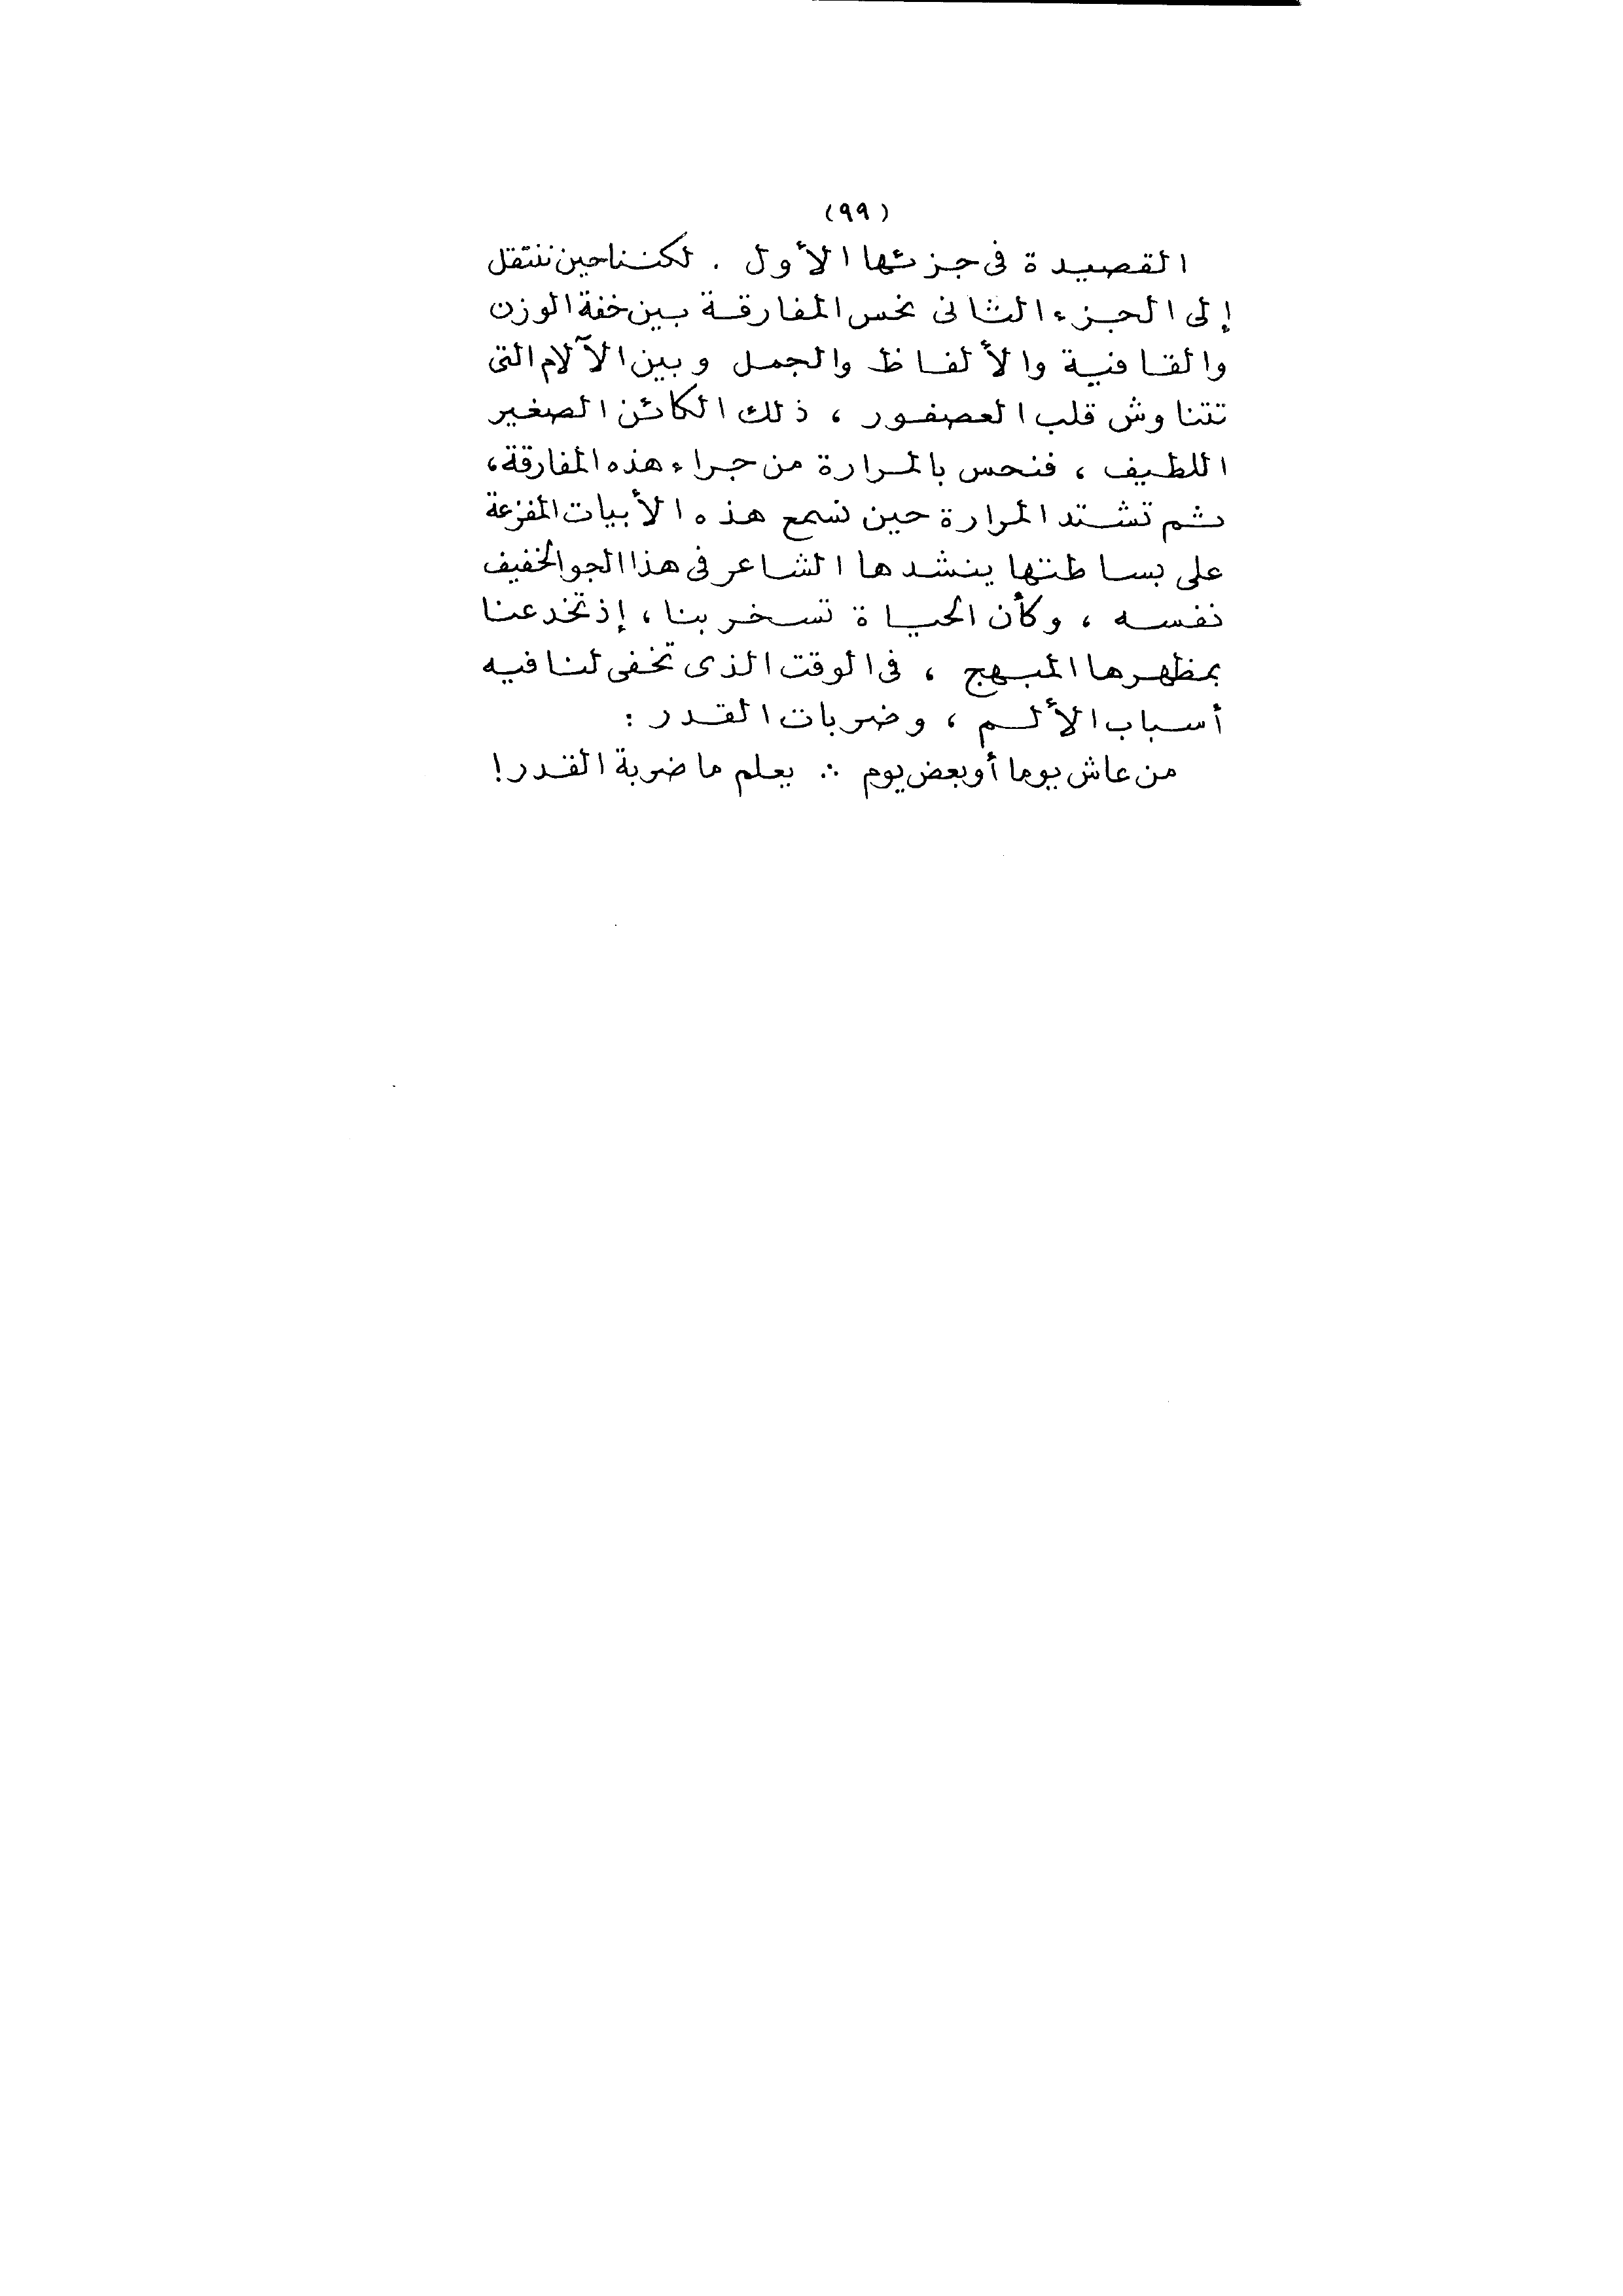 (٩٩)
القصيدة فى جزئها الأول . لكننا حين ننتقل
إلى الجزء الثانى نحس المفارقة بين خفة الوزن
والقافية والألفاظ والجمل وبين الآلام التى
تتناوش قلب العصفور ، ذلك الكائن الصغير
اللطيف ، فنحس بالمرارة من جراء هذه المفارقة،
ثم تشتد المرارة حين نسمع هذه الأبيات المفزعة
على بساطتها ينشدها الشاعر فى هذا الجو الخفيف
نفسه ، وكأن الحياة تسخر بنا ، إذ تخدعنا
بمظهرها المبهج ، فى الوقت الذى تخفى لنا فيه
أسباب الألم ، وضربات القدر :
من عاش يوما أو بعض يوم ∴ يعلم ما ضربة القدر!